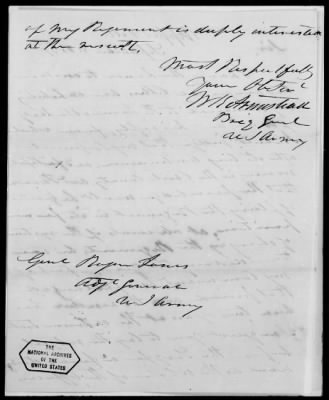 of my Regiment is deeply interested
at the result.
Most Respectfully
Your Obt Svt
W K Armistead
Brig Genl
U S Army
Genl Roger Jones
Adjt General
U S Army
THE
NATIONAL ARCHIVES
OF THE
UNITED STATES